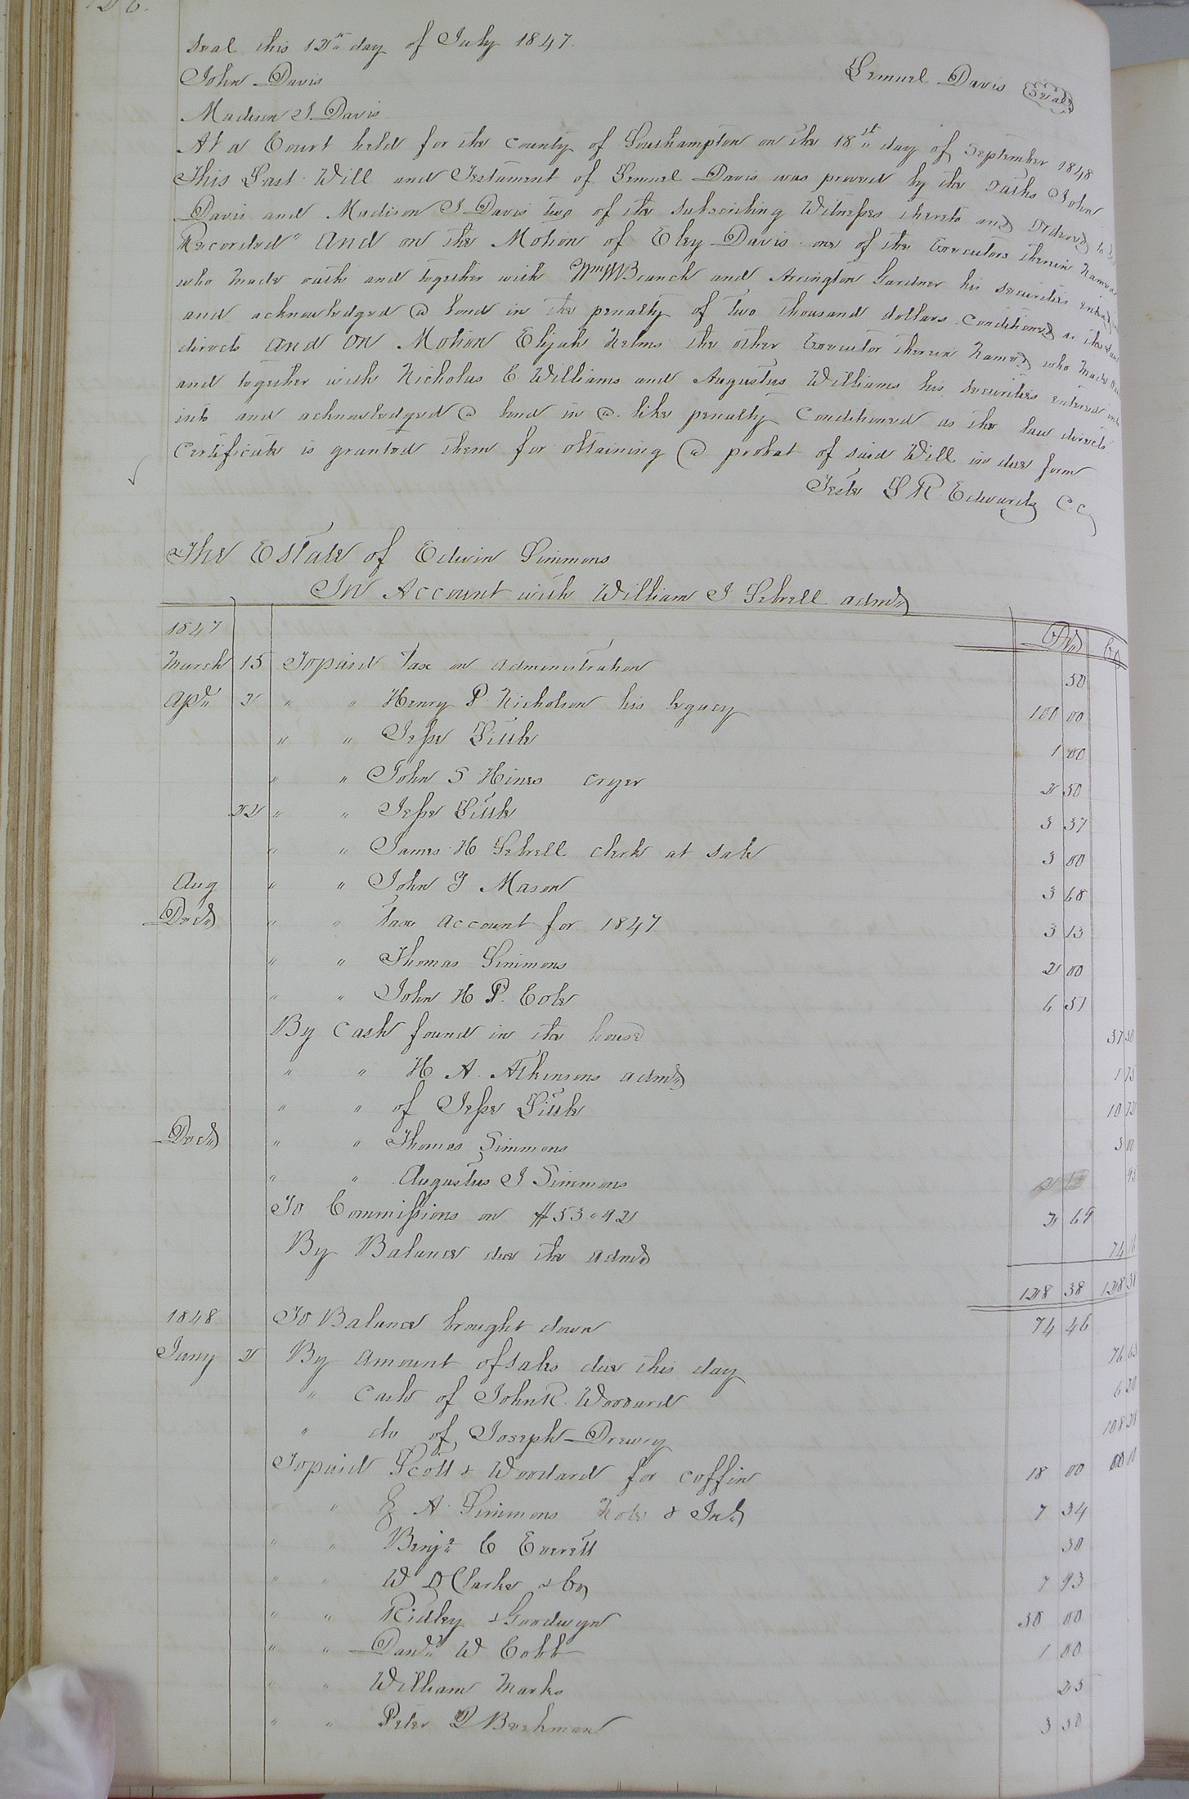 Seal this 12th day of July 1847.
John Davis Lemuel Davis Seal
Madison J Davis
At a Court held for the county of Southampton on the 18th day of September 1848
This Last Will and Testament of Lemuel Davis was proved by the oaths John
Davis and Madison J Davis two of the subscribing Witnesses thereto and ordered to be
Recorded And on the Motion of Eley Davis one of the Executors therein named
who made oath and together with Wm W Branch and Arrington Gardner his securities entered
and acknowledged a bond in the penalty of two thousand dollars conditioned as the law
directs And on Motion Elijah Helms the other Executor therein Named who made oath
and together with Nicholas E Williams and Augustus Williams his securities entered
into and acknowledged a bond in a like penalty Conditioned as the law directs
Certificate is granted them for obtaining a probat of said Will in due form
Teste L R Edwards C C
The Estate of Edwin Simmons
In Account with William J Sebrell admr
1847 Dr Cr
March 15 To paid Tax on administration 50
Apl 2 " " Henry P Nicholson his legacy 100 00
" " Jesse Little 1 00
" " John S Hines cryer 2 50
22 " " Jesse Little 3 37
" " James H Sebrell clerk at sale 3 00
Aug " " John Y Mason 3 68
Decr " " Tax account for 1847 3 13
" " Thomas Simmons 2 00
" " John H P. Cole 6 51
By Cash found in the house 37 50
" " H A. Atkinsons admr 1 75
" " of Jesse Little 10 72
Decr " " Thomas Simmons 3 0
" " Augustus J Simmons 93
To Commissions on $53.92 2 69
By Balance due the admr 74 46
128 38 128 38
1848 To Balance brought down 74 46
Jany 2 By amount of sales due this day 76 63
" Cash of John R. Woodard 6 20
" do of Joseph Drewry
To paid Scott & Woodard for coffin 18 00
" " A Simmons Note & Int 7 34
" " Benja C Everett 50
" " W D Clarke & Co 7 93
" " Ridley & Goodwyn 30 00
" " Danl W Cobb 1 00
" " William Marks 25
" " Peter D Beekman 3 50